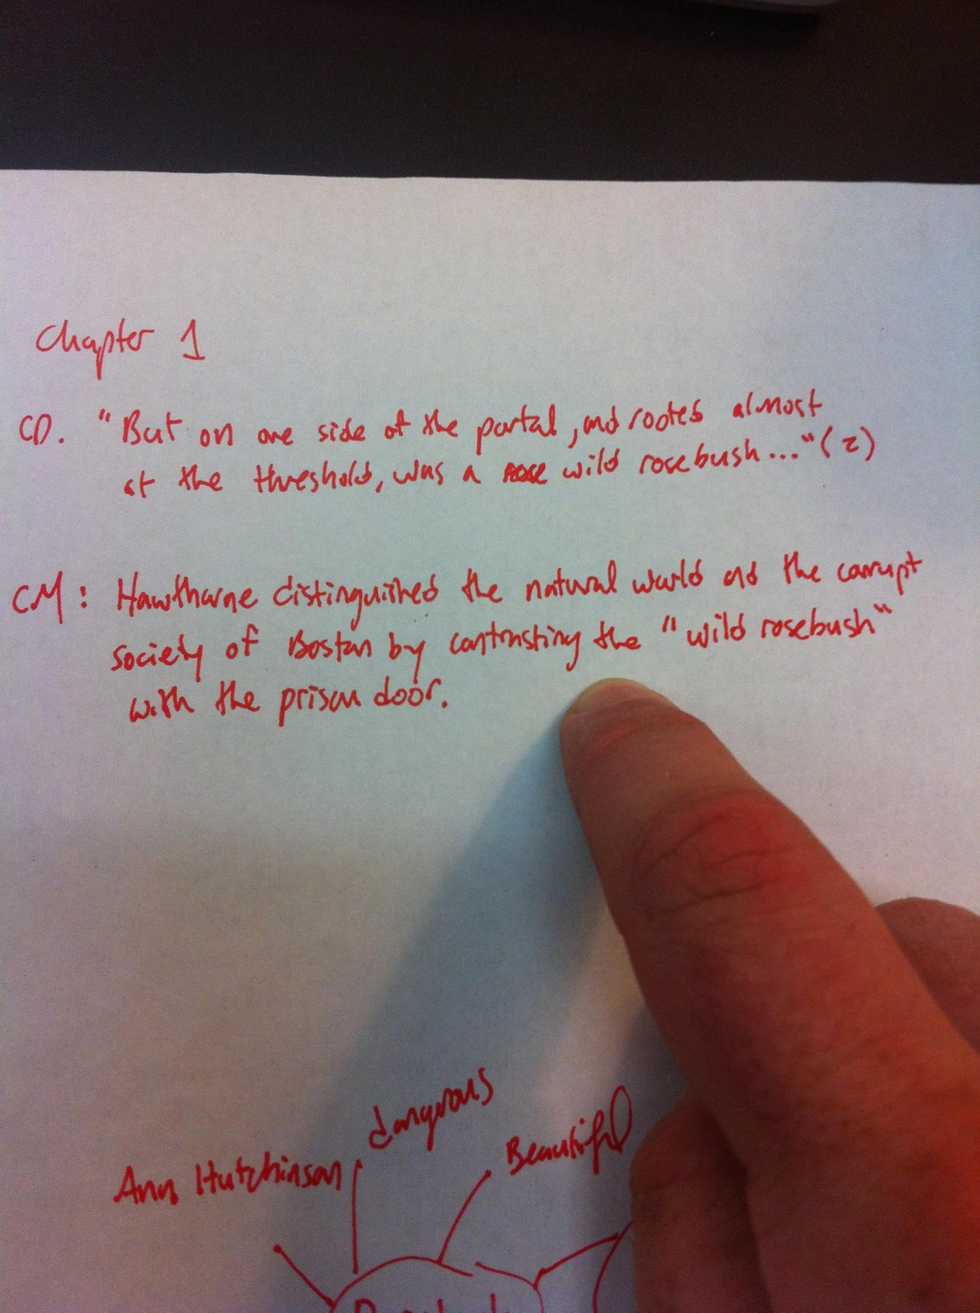 Chapter 1
CD. "But on one side of the portal, and rooted almost
at the threshold, was a rose wild rosebush..." (2)
CM: Hawthorne distinguished the natural world and the corrupt
society of Boston by contrasting the "wild rosebush"
with the prison door.
dangerous
Beautiful
Ann Hutchinson